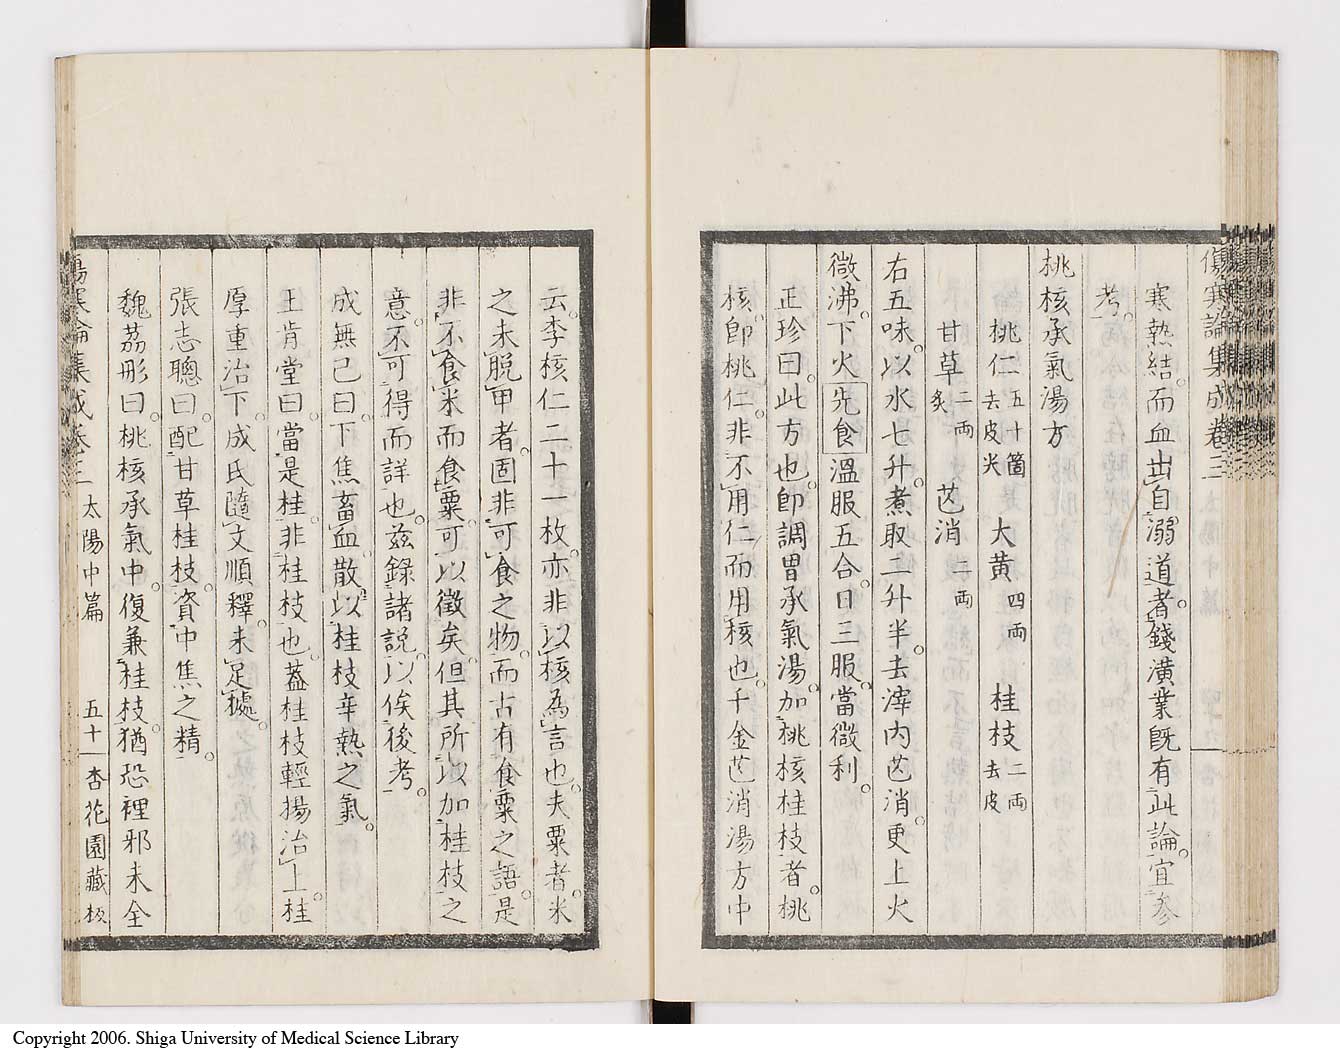 傷寒論集成卷三 太陽中篇
寒熱結。而血出自溺道者。錢潢業既有此論。宜參
考。
桃核承氣湯方
桃仁五十箇去皮尖 大黃四兩 桂枝二兩去皮
甘草二兩炙 芒消二兩
右五味。以水七升。煮取二升半。去滓內芒消。更上火
微沸。下火先食溫服五合。日三服。當微利。
正珍曰。此方也。卽調胃承氣湯。加桃核桂枝者。桃
核。卽桃仁。非不用仁而用核也。千金芒消湯方中
云。李核仁二十一枚。亦非以核為言也。夫粟者。米
之未脫甲者。固非可食之物。而古有食粟之語。是
非不食米而食粟。可以徵矣。但其所以加桂枝之
意。不可得而詳也。茲錄諸說。以俟後考。
成無己曰。下焦畜血。散以桂枝辛熱之氣。
王肯堂曰。當是桂。非桂枝也。蓋桂枝輕揚治上。桂
厚重治下。成氏隨文順釋。未足據。
張志聰曰。配甘草桂枝。資中焦之精。
魏荔彤曰。桃核承氣中。復兼桂枝。猶恐裡邪未全
傷寒論集成卷三 太陽中篇 五十一 杏花園藏板